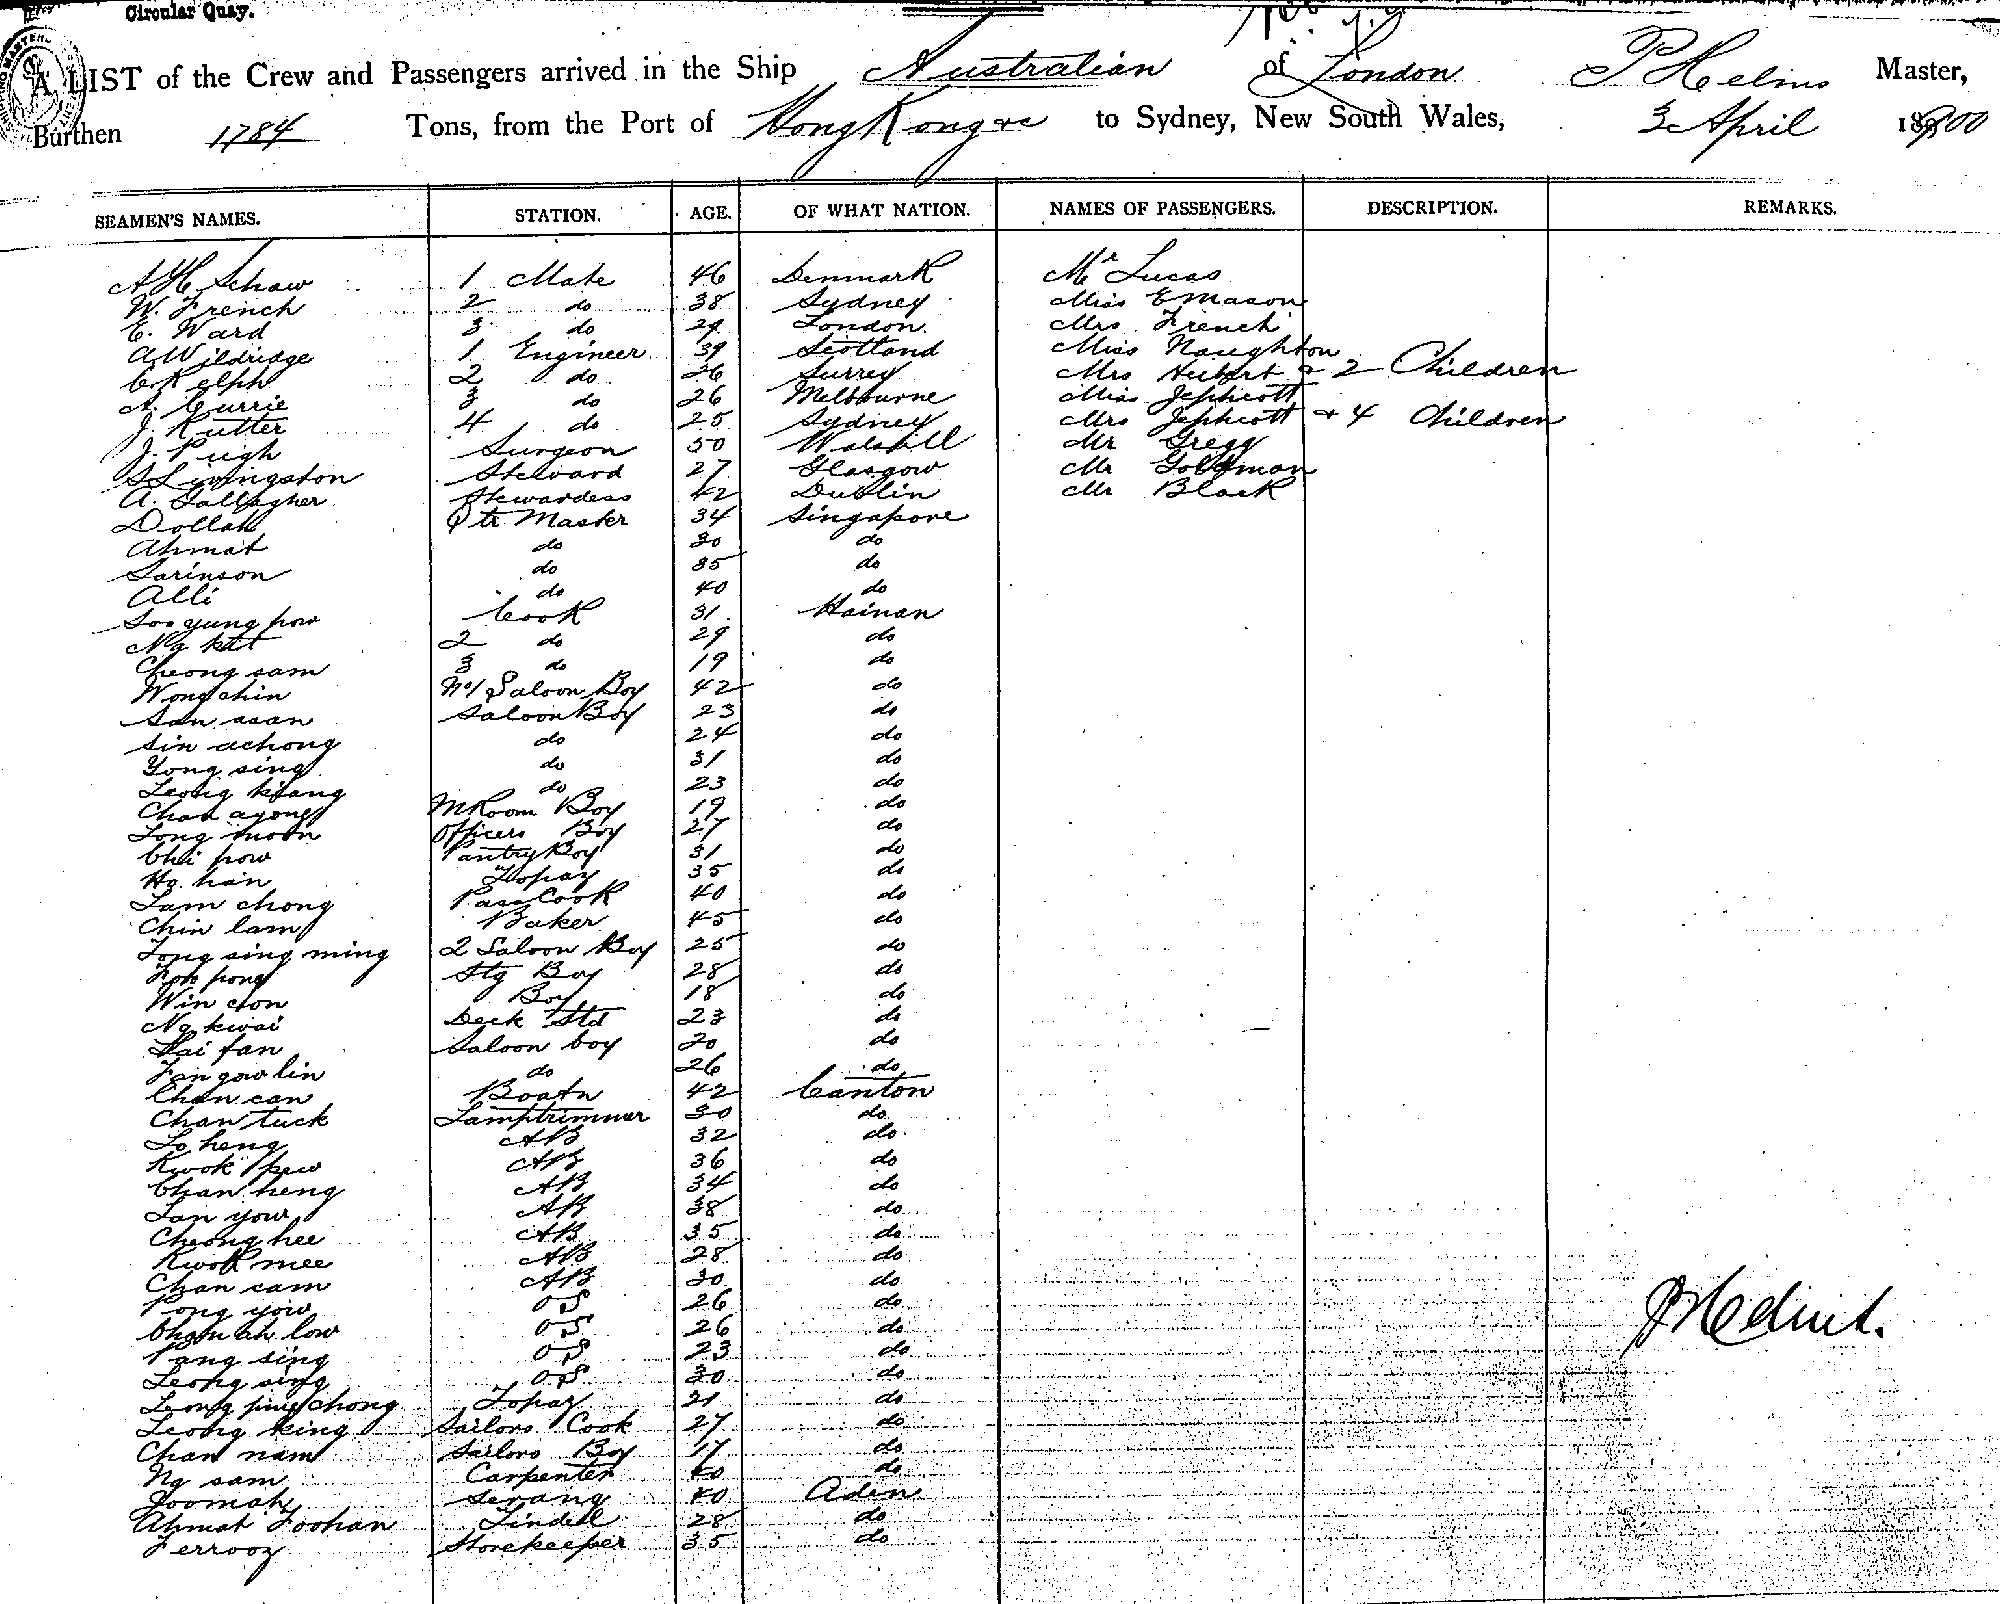 Circular Quay.
A LIST of the Crew and Passengers arrived in the Ship Australian of London P Helms Master,
Burthen 1784 Tons, from the Port of Hong Kong &c to Sydney, New South Wales, 3 April 1900
SEAMEN'S NAMES. STATION. AGE. OF WHAT NATION. NAMES OF PASSENGERS. DESCRIPTION. REMARKS.
A H Schaw 1 Mate 46 Denmark Mr Lucas
W. French 2 do 38 Sydney Miss E Mason
E. Ward 3 do 29 London. Mrs French
A Wildridge 1 Engineer 39 Scotland Miss Naughton
C. Kelph 2 do 26 Surrey Mrs Heibert & 2 Children
A. Currie 3 do 26 Melbourne Miss Jephcott
J. Rutter 4 do 25 Sydney Mrs Jephcott + 4 Children
J. Pugh Surgeon 50 Walsall Mr Gregg
S Livingston Steward 27 Glasgow Mr Goldman
A. Gallagher Stewardess 42 Dublin Mr Black
Dollah Qtr Master 34 Singapore
Ahmat do 30 do
Sarinson do 35 do
Alli do 40 do
Soo yung pow Cook 31 Hainan
Ng kat 2 do 29 do
Cheong sam 3 do 19 do
Wong chin No 1 Saloon Boy 42 do
San asan Saloon Boy 23 do
Sin achong do 24 do
Yong sing do 31 do
Leong kiang do 23 do
Chan ayong M Room Boy 19 do
Tong moon Officers Boy 27 do
Chi pow Pantry Boy 31 do
Ng han Topaz 35 do
Lam chong Pass Cook 40 do
Chin lam Baker 45 do
Tong sing ming 2 Saloon Boy 25 do
Foh pong Stg Boy 28 do
Win con Boy 18 do
Ng kwai Deck Std 23 do
Hai fan Saloon boy 20 do
Fan gow lin do 26 do
Chan can Boatn 42 Canton
Chan tuck Lamptrimmer 30 do
Lo heng AB 32 do
Kwok pew AB 36 do
Chan heng AB 34 do
Lan yow AB 38 do
Cheong hee AB 35 do
Kwok mee AB 28 do
Chan cam AB 30 do
Pong yow OS 26 do
Cham ah low OS 26 do
Pang sing OS 23 do
Leong sing OS 30 do
Leong ping chong Topaz 21 do
Leong king Sailors Cook 27 do
Chan nam Sailors Boy 17 do
Ng sam Carpenter 40 do
Joomah Serang 40 Aden
Ahmat Foohan Tindell 28 do
Ferrooz Storekeeper 35 do